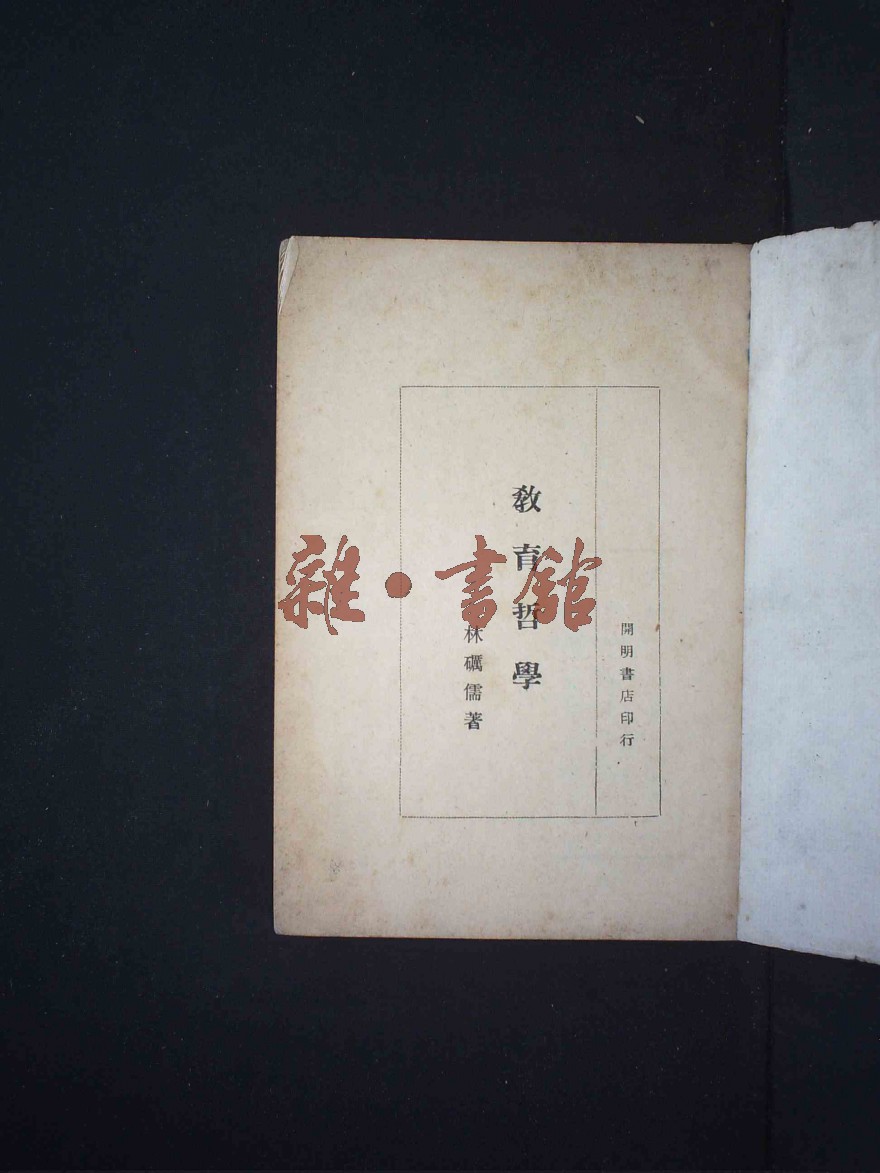 開明書店印行
教育哲學
林礪儒著
雜·書館